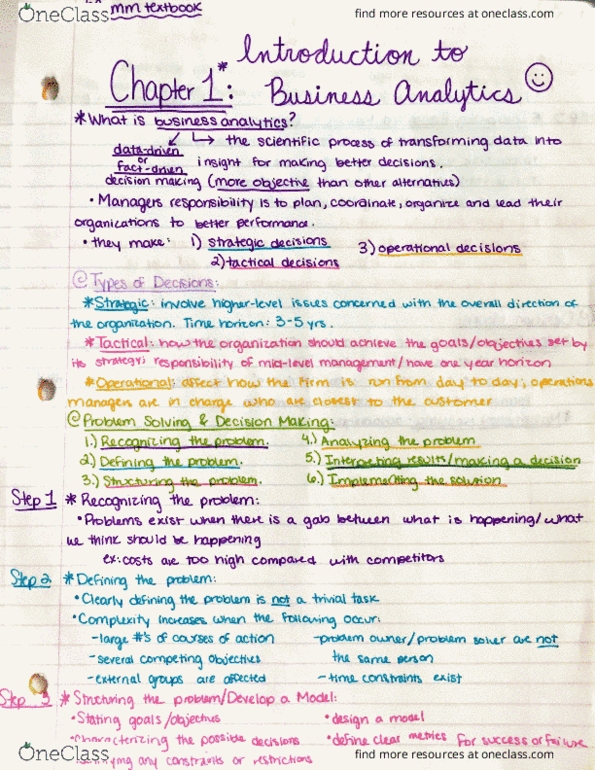 OneClass
find more resources at oneclass.com
mm textbook
Chapter 1: * Introduction to
Business Analytics
* What is business analytics?
↳ the scientific process of transforming data into
data-driven
or
fact-driven insight for making better decisions.
decision making (more objective than other alternatives)
• Managers responsibility is to plan, coordinate, organize and lead their
organizations to better performance.
• they make: 1) strategic decisions 3) operational decisions
2) tactical decisions
@ Types of Decisions:
* Strategic: involve higher-level issues concerned with the overall direction of
the organization. Time horizon: 3-5 yrs.
* Tactical: how the organization should achieve the goals/objectives set by
its strategy; responsibility of mid-level management/have one year horizon
* Operational: affect how the firm is run from day to day; operations
managers are in charge who are closest to the customer
@ Problem Solving & Decision Making:
1.) Recognizing the problem. 4.) Analyzing the problem
2.) Defining the problem. 5.) Interpreting results/making a decision
3.) Structuring the problem. 6.) Implementing the solution
Step 1 * Recognizing the problem:
• Problems exist when there is a gab between what is happening/what
we think should be happening
ex: costs are too high compared with competitors
Step 2 * Defining the problem:
• Clearly defining the problem is not a trivial task
• Complexity increases when the following occur:
- large #'s of courses of action - problem owner/problem solver are not
- several competing objectives the same person
- external groups are affected - time constraints exist
Step 3 * Structuring the problem/Develop a Model:
• Stating goals/objectives • design a model
• characterizing the possible decisions • define clear metrics for success or failure
any constraints or restrictions
OneClass
find more resources at oneclass.com